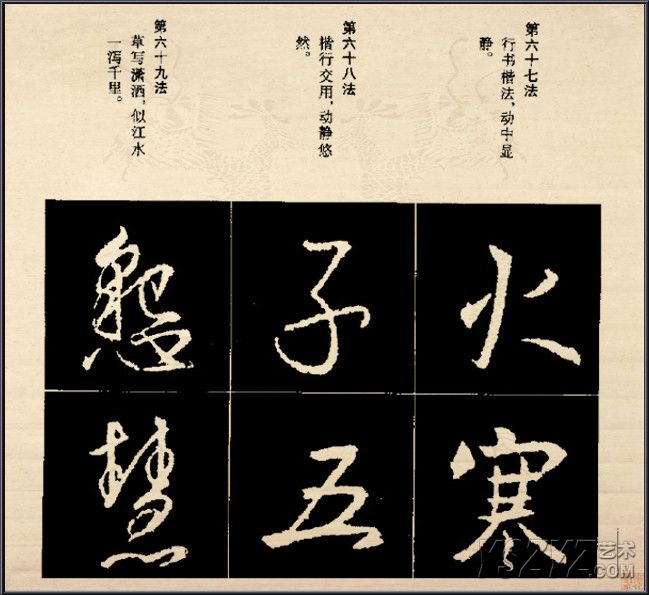 第六十七法
行书楷法,动中显
静。
第六十八法
楷行交用,动静悠
然。
第六十九法
草写潇洒,似江水
一泻千里。
火
寒
子
五
慧
YSZYZ艺术
.com